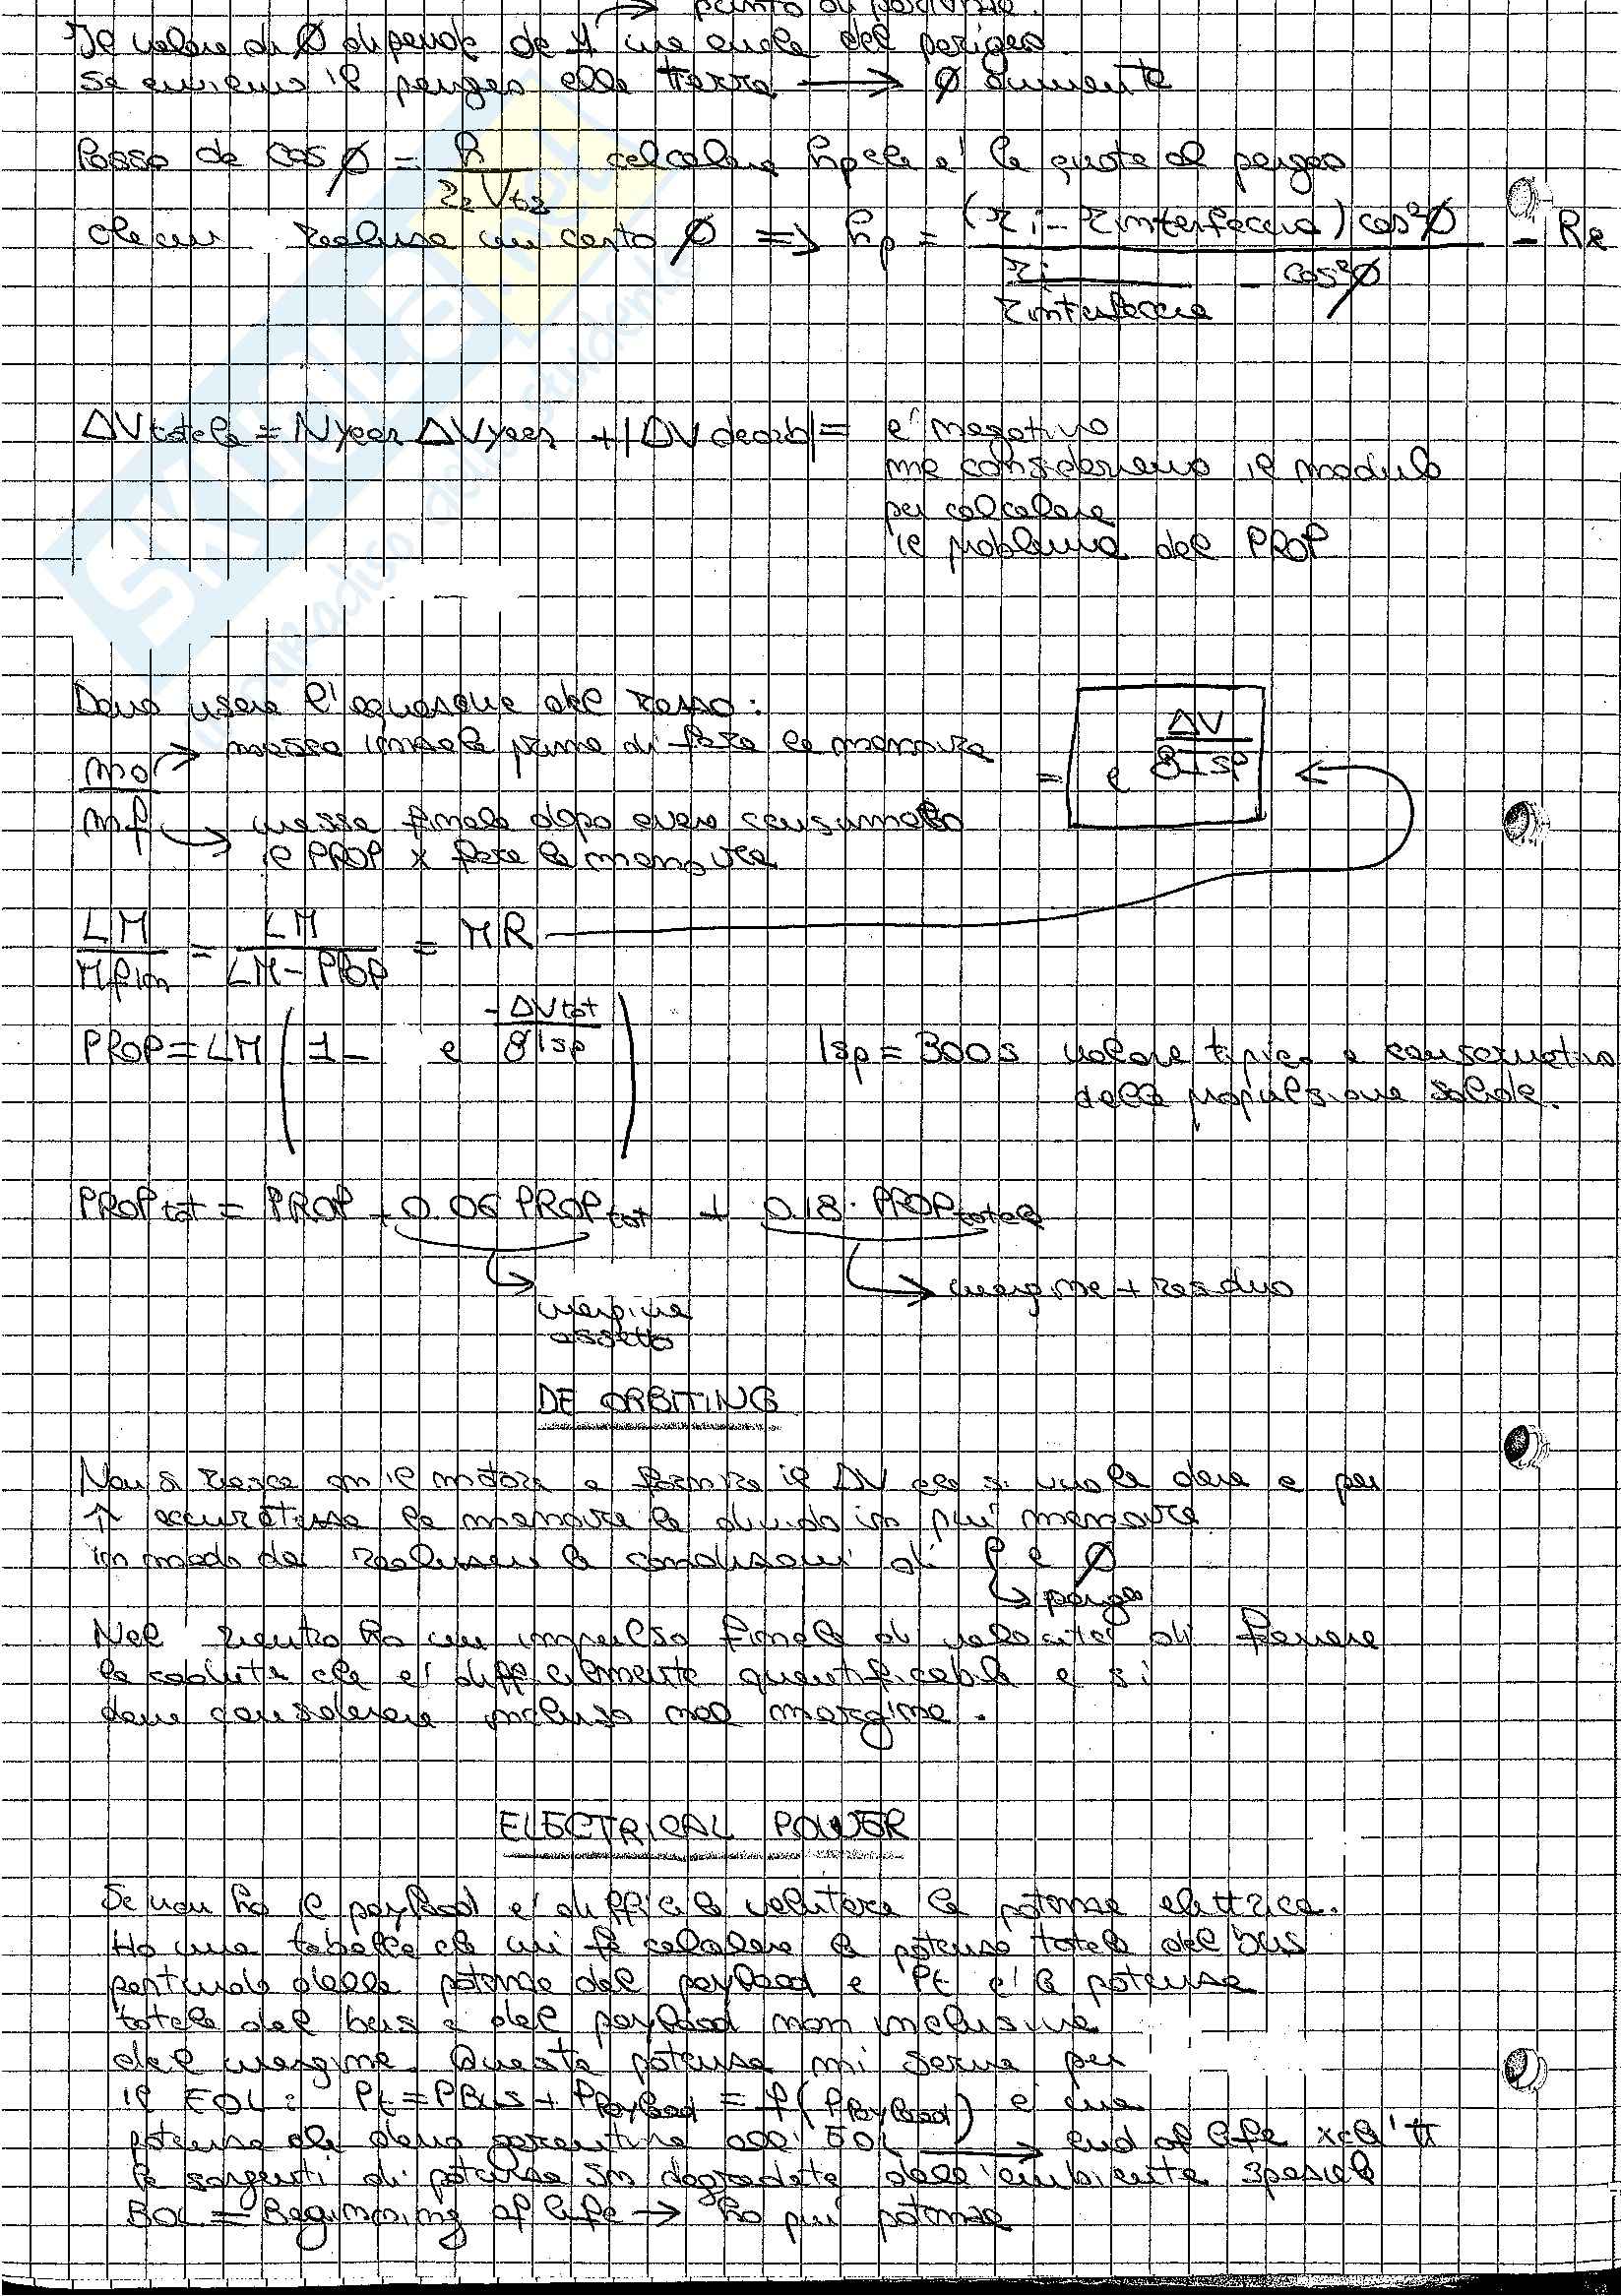 → punto di partenza.
Il valore di Ø dipende da 4 ma anche del perigeo.
Se avviciniamo il perigeo alla terra → Ø aumenta
Posso da cos Ø = h / r2 Vt2 calcolare hp che e' la quota al perigeo
che mi realizza un certo Ø => hp = (ri - rinterfaccia) cos²Ø / (ri / rinterfaccia - cos²Ø) - Re
ΔVtotale = Nyear ΔVyear + |ΔVdeorb| = e' negativo
ma consideriamo il modulo
per calcolare
il problema del PROP
Devo usare l'equazione del razzo:
mo → massa iniziale prima di fare la manovra = e^(ΔV / g Isp)
mf → massa finale dopo avere consumato
il PROP x fare la manovra
LM / Mfin = LM / (LM - PROP) = MR
PROP = LM (1 - e^(-ΔVtot / g Isp)) Isp = 300 s valore tipico e conservativo
della propulsione solida.
PROPtot = PROP + 0.06 PROPtot + 0.18 · PROPtotale
→ margine + residuo
margine
assetto
DE ORBITING
Non si riesce con il motore a fornire il ΔV che si vuole dare e per
↑ accuratezza la manovra la divido in più manovre
in modo da realizzare le condizioni di P e Ø
→ perigeo
Nel rientro ho un impulso finale di velocità di fermare
la caduta che e' difficilmente quantificabile e si
deve considerare incluso nel margine.
ELECTRICAL POWER
Se non ho il payload e' difficile valutare la potenza elettrica.
Ho una tabella che mi fa calcolare la potenza totale del bus
partendo dalla potenza del payload e Pt e' la potenza
totale del bus e del payload non inclusiva
del margine. Questa potenza mi serve per
il EOL: Pt = PBus + PPayload = f(PPayload) e' una
potenza che devo garantire all' EOL → end of life xchè tt
le sorgenti di potenza sn degradate dall'ambiente spaziale
BOL = Beginning of life → ho più potenza